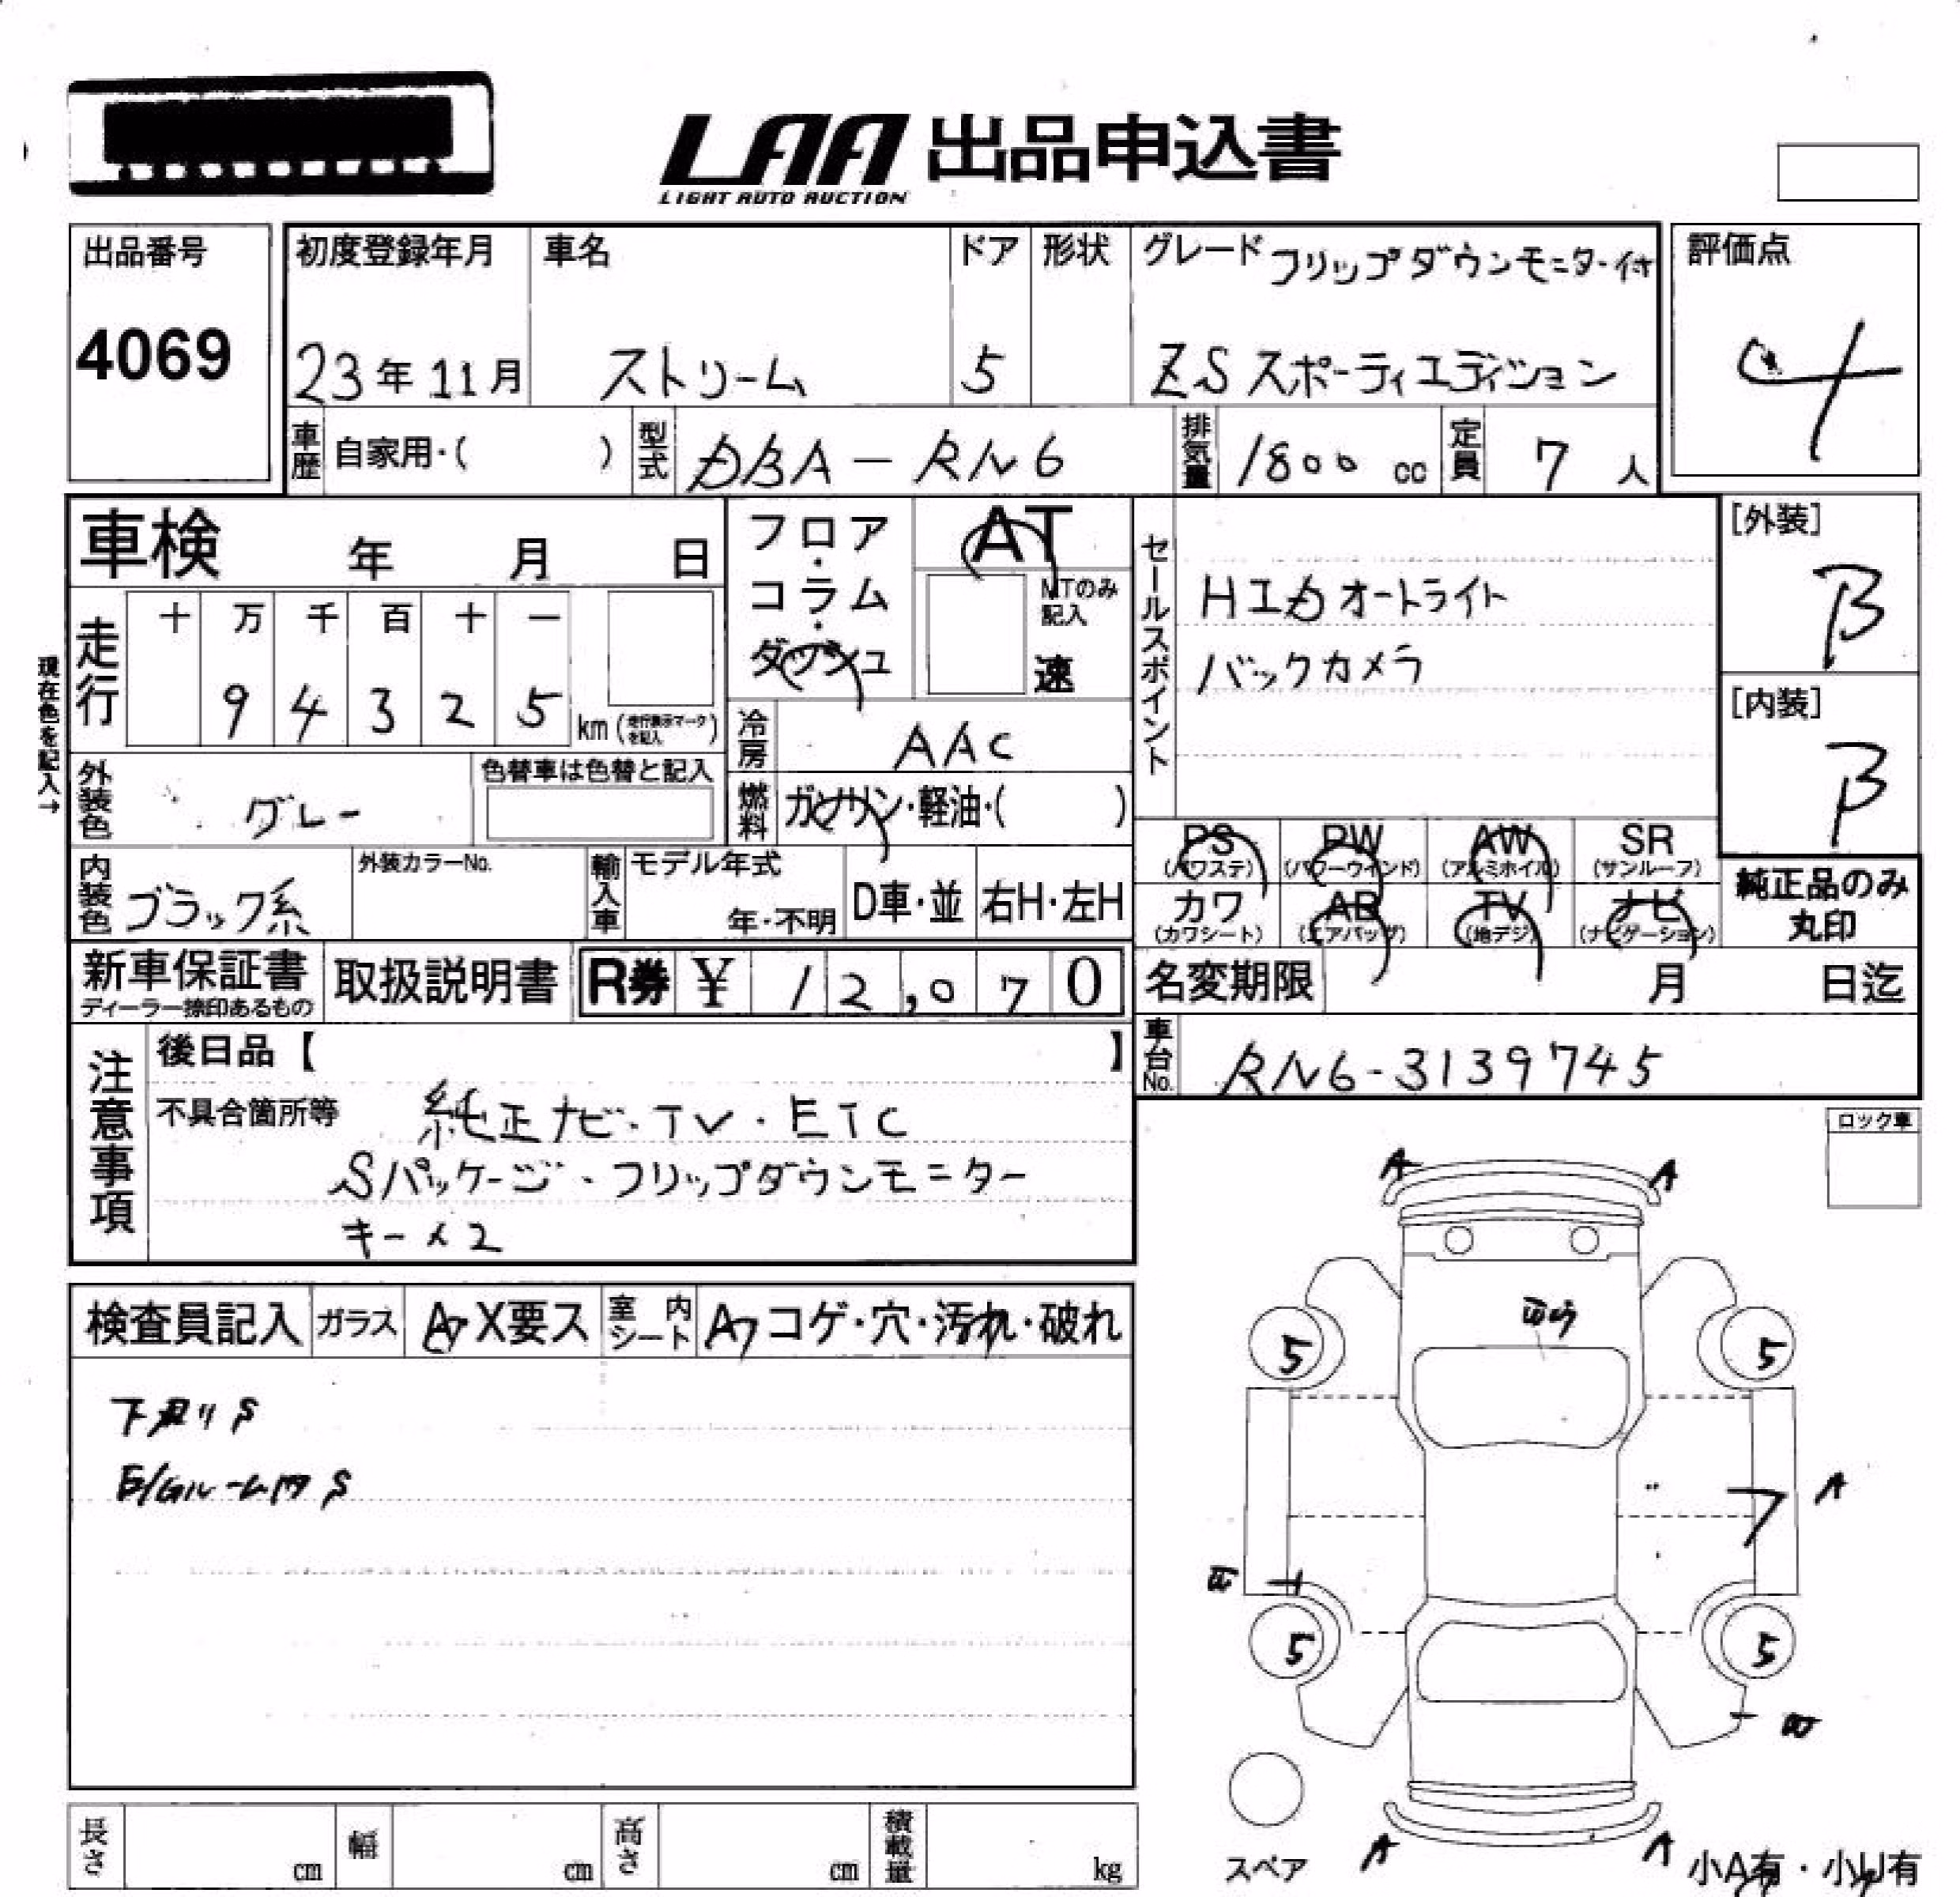 LAA 出品申込書
LIGHT AUTO AUCTION
出品番号
4069
初度登録年月
23年11月
車名
ストリーム
ドア
5
形状
グレード フリップダウンモニター付
ZS スポーティエディション
評価点
4
車歴 自家用・( )
型式 DBA-RN6
排気量 1800 cc
定員 7 人
車検 年 月 日
走行 十 万 千 百 十 一
9 4 3 2 5
km (走行表示マークを記入)
現在色を記入→
フロア・コラム・ダッシュ
AT
MTのみ記入
速
セールスポイント
Hエカ オートライト
バックカメラ
[外装]
B
[内装]
B
冷房 AAC
燃料 ガソリン・軽油・( )
外装色 グレー
色替車は色替と記入
内装色 ブラック系
外装カラーNo.
輸入車 モデル年式
年・不明
D車・並
右H・左H
PS (パワステ)
PW (パワーウインド)
AW (アルミホイル)
SR (サンルーフ)
カワ (カワシート)
AB (エアバッグ)
TV (地デジ)
ナビ (ナビゲーション)
純正品のみ
丸印
新車保証書
ディーラー捺印あるもの
取扱説明書
R券 ¥ 12,070
名変期限 月 日迄
車台No. RN6-3139745
注意事項
後日品【 】
不具合箇所等 純正ナビ・TV・ETC
Sパッケージ・フリップダウンモニター
キー×2
ロック車
検査員記入
ガラス A・X要ス
室内シート A・コゲ・穴・汚れ・破れ
下廻りS
E/Gルーム内S
A A
5 5
A
5 5
A A
スペア
小A有・小U有
長さ cm
幅 cm
高さ cm
積載量 kg